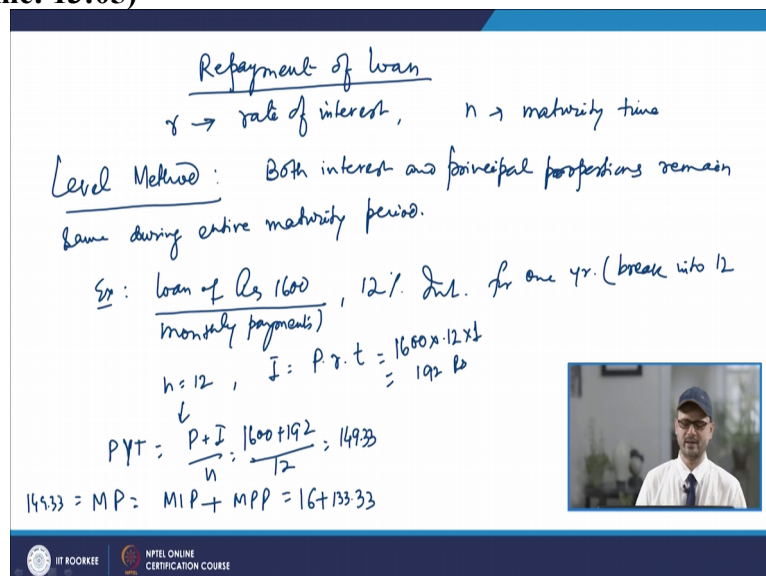 Repayment of loan
r → rate of interest, n → maturity time
Level Method: Both interest and principal proportions remain
same during entire maturity period.
Ex: loan of Rs 1600, 12% Int. for one yr. (break into 12
monthly payments)
n = 12, I = P.r.t = 1600×.12×1
= 192 Rs
↓
PYT = P+I/n = 1600+192/12 = 149.33
149.33 = MP = MIP + MPP = 16+133.33
IIT ROORKEE NPTEL ONLINE
CERTIFICATION COURSE